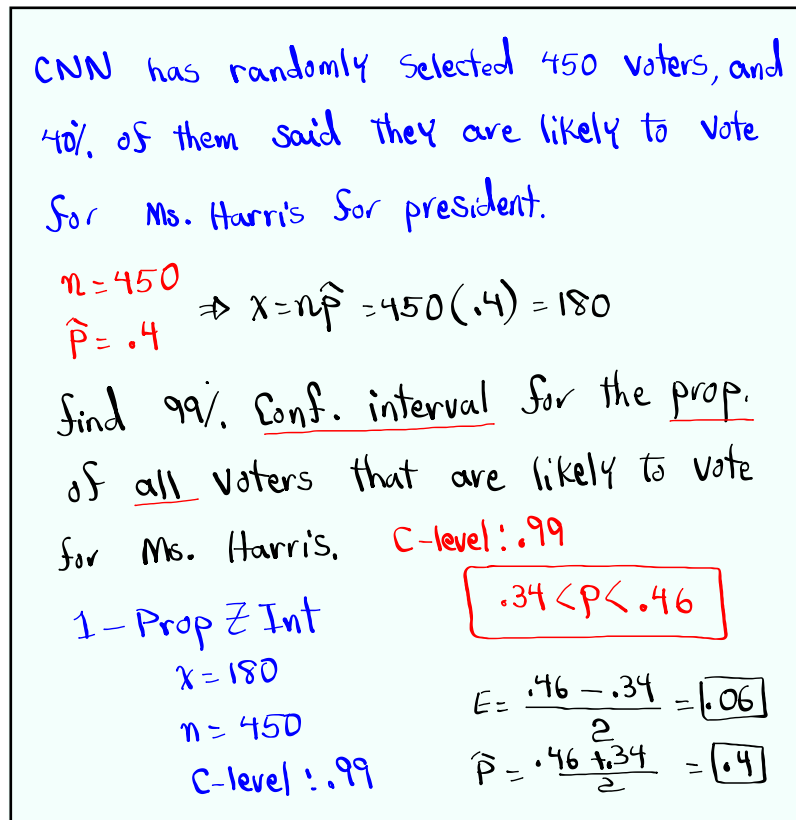 CNN has randomly selected 450 voters, and
40% of them said they are likely to vote
for Ms. Harris for president.
n = 450
p̂ = .4
⇒ x = np̂ = 450(.4) = 180
find 99% Conf. interval for the prop.
of all voters that are likely to vote
for Ms. Harris. C-level: .99
.34 < p < .46
1-Prop Z Int
x = 180
n = 450
C-level: .99
E = (.46 - .34)/2 = .06
p̂ = (.46 + .34)/2 = .4